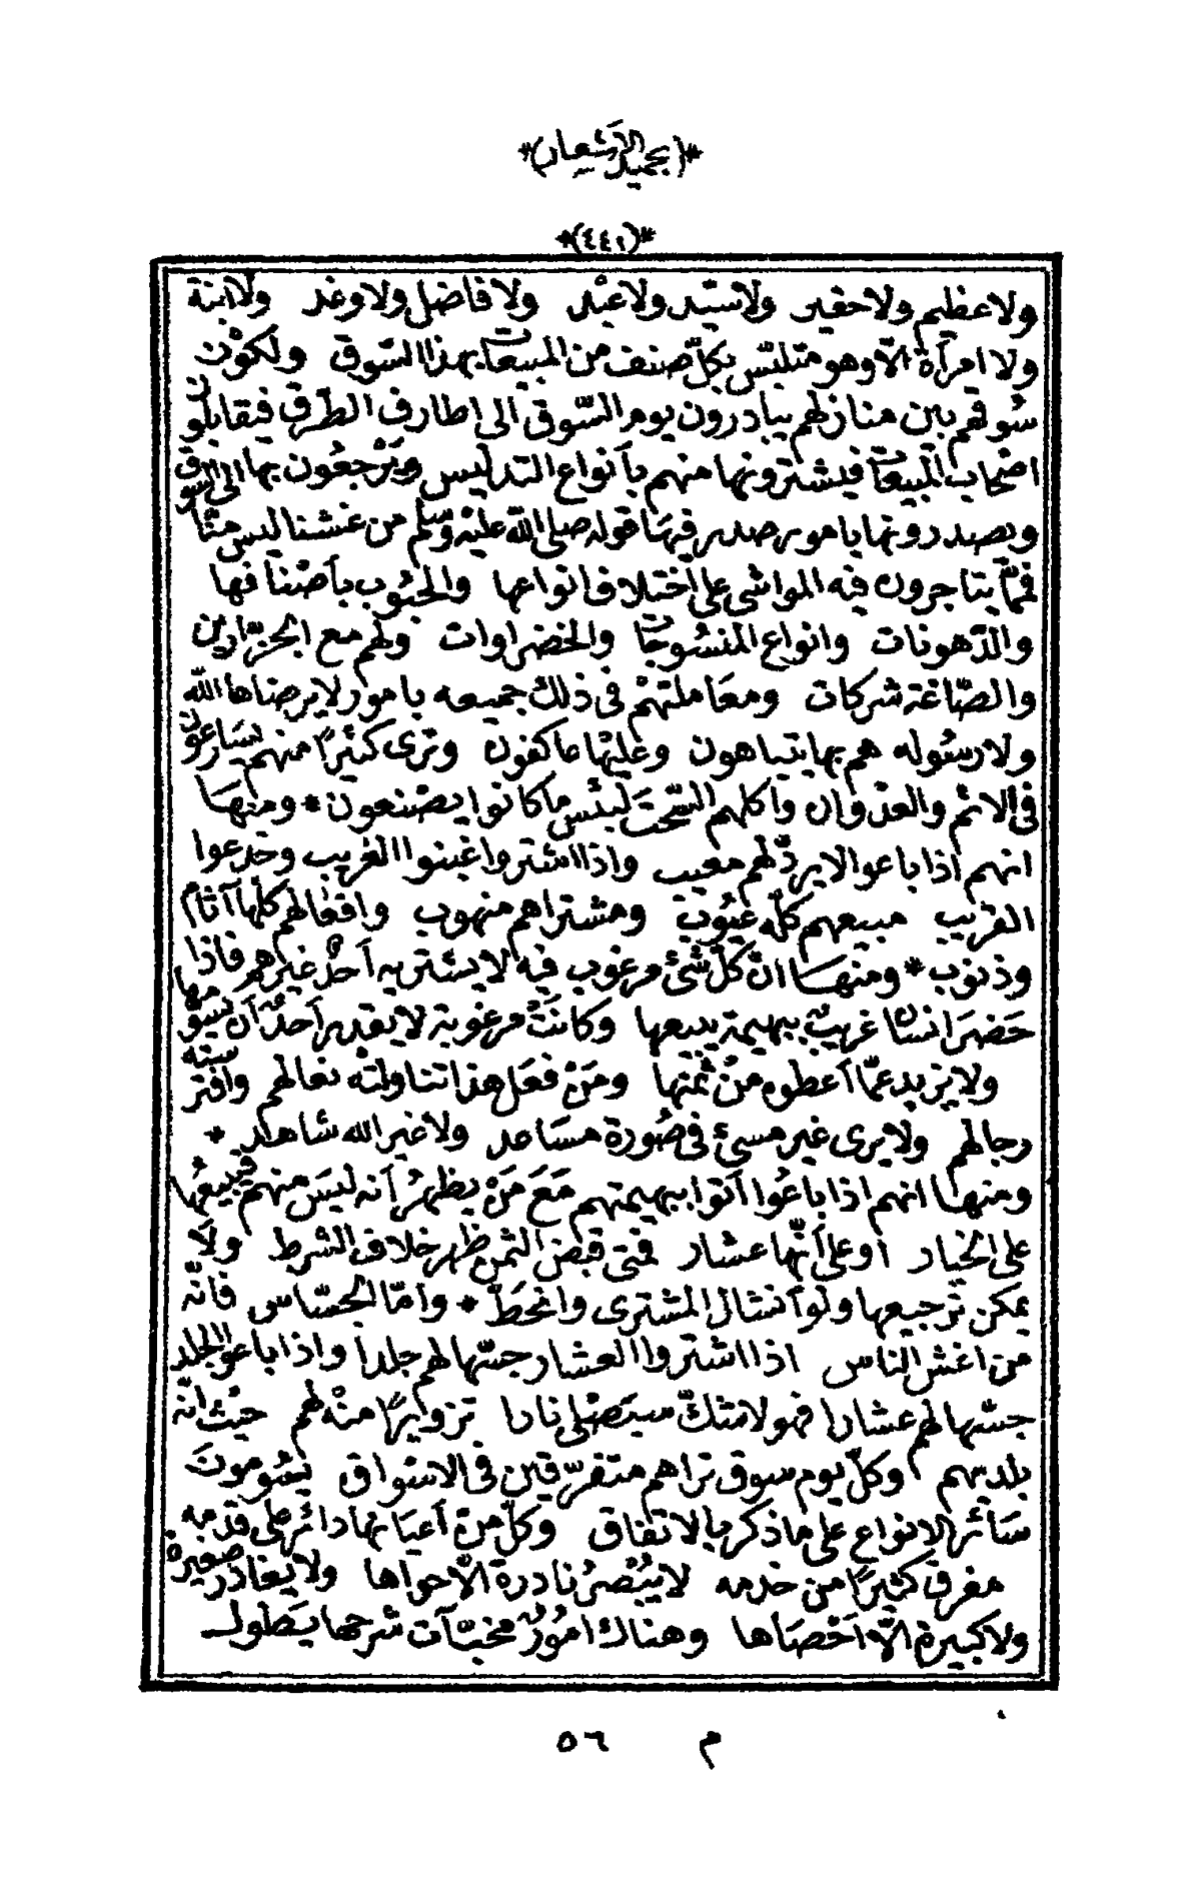 *(بحميد الأشعار)*
*(٤٤١)*
ولا عظيم ولا حقير ولا سيّد ولا عبْد ولا فاضل ولا وغد ولا ابنة
ولا امرأة الّا وهو متلبّس بكلّ صنف من المبيعات بهذا السّوق ولكوْن
سُوقهم بين منازلهم يبادرون يوم السّوق الى اطارف الطّرق فيقابلون
اصْحاب المَبيعات فيشترونها منهم بأنواع التدليس ويَرْجعُون بها الى السّوق
ويصدرونها بامور صدر فيهَا قوله صلى الله عليْه وسّلم من غشنا ليس منّا
فمّما يتاجرون فيه المواشى على اختلاف انواعها والحبُوب بأصْنافها
والدّهونات وانواع المنسُوجات والخضراوات ولهم مع الجزّارين
والصّاغة شركات ومعَاملتهمْ فى ذلك جميعه بامور لا يرضاها الله
ولا رسُوله هم بها يتباهون وعليْها عاكفون وترى كثيرًا منهم يسَارعون
فى الاثم والعدْوان واكلهم السّحتَ لبئس ما كانوا يصْنعون * ومنهَا
انهم اذا باعوا لا يردّ لهم معيب واذا اشتروا غبنوا الغريب وخدعوا
القريب مبيعهم كلّه عيُوب ومشتراهم منهوب وافعٰالهم كلّها آثام
وذنوب * ومنهَا انّ كلّ شئ مرغوب فيه لا يشتريه أحدٌ غيرهم فاذا
حَضرَ انسان غريبٌ ببهيمة يبيعها وكانَتْ مرغوبة لا يقدر أحدٌ أن يسومها
ولا يزيد عمّا أعطوه منْ ثمنها ومَنْ فعَل هذا تناولتْه نعالهم وافترسته
رجالهم ولا يرى غير مسئ فى صُورة مسَاعد ولا غير الله شاهد *
ومنهَا انهم اذا باعُوا أتوا ببهيمتهم مَعَ مَنْ يظهرُ أنه ليسَ منهم فيبيعُها
على الخيار أو على أنّها عشار فمتى قبض الثمن ظهر خلاف الشرط ولاَ
يمكن ترجيعها ولو أنشال المشترى وانحَطّ * وامّا الجسّاس فانّه
من اغش الناس اذا اشتروا العشار جسّها لهم جلدا واذا باعوا الجلد
جسّها لهم عشارا فهو لا شكّ سيَصْلى نارا تزويرًا منْه لهم حيْث انّه
بلديهم وكلّ يوم سوق تراهم متفرّقين فى الاسْواق يسُومونَ
سَائر الانواع على ما ذكر بالاتفاق وكلّ منْ أعيَانها دائر على قدمه
مفرق كثيرًا من خدمه لا يُبْصرُ نادرة الّا حواها ولا يغادر صغيرة
ولا كبيرة الّا اَحْصَاها وهناك امُورٌ مخبّآت شرحها يَطول
م ٥٦